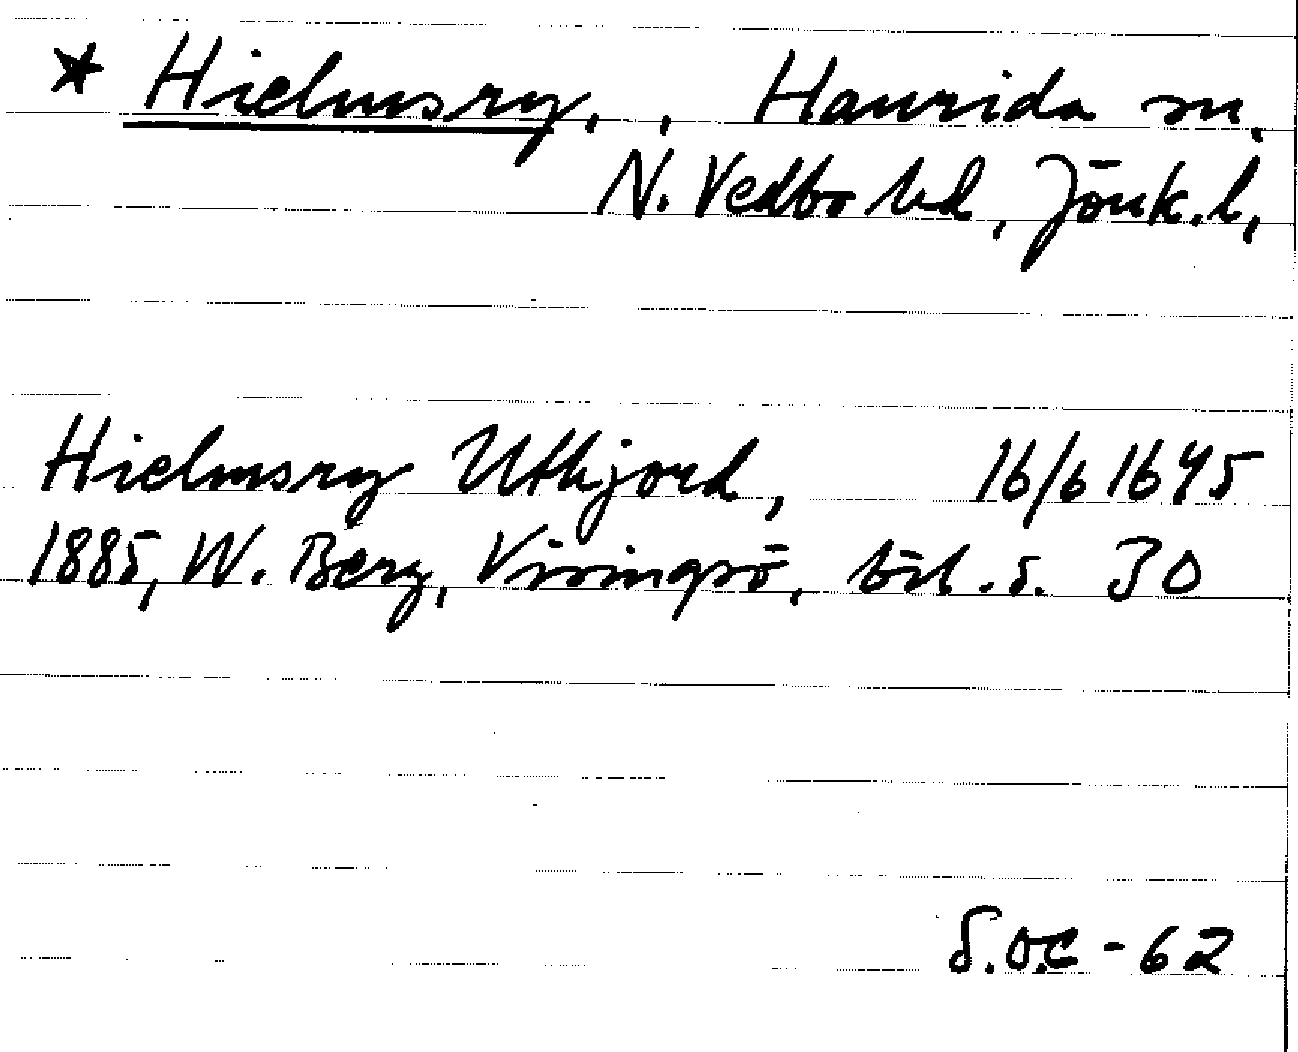 * Hielmsry, , Haurida sn,
N. Vedbo hd, Jönk. l,
Hielmsry Uthjord, 16/6 1645
1885, W. Berg, Visingsö, bil. s. 30
S.O.C - 62